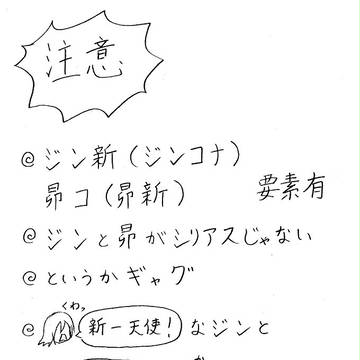 注意
@ジン新(ジンコナ)
昴コ(昴新) 要素有
@ジンと昴がシリアスじゃない
@というかギャグ
くわっ
@新一天使!なジンと